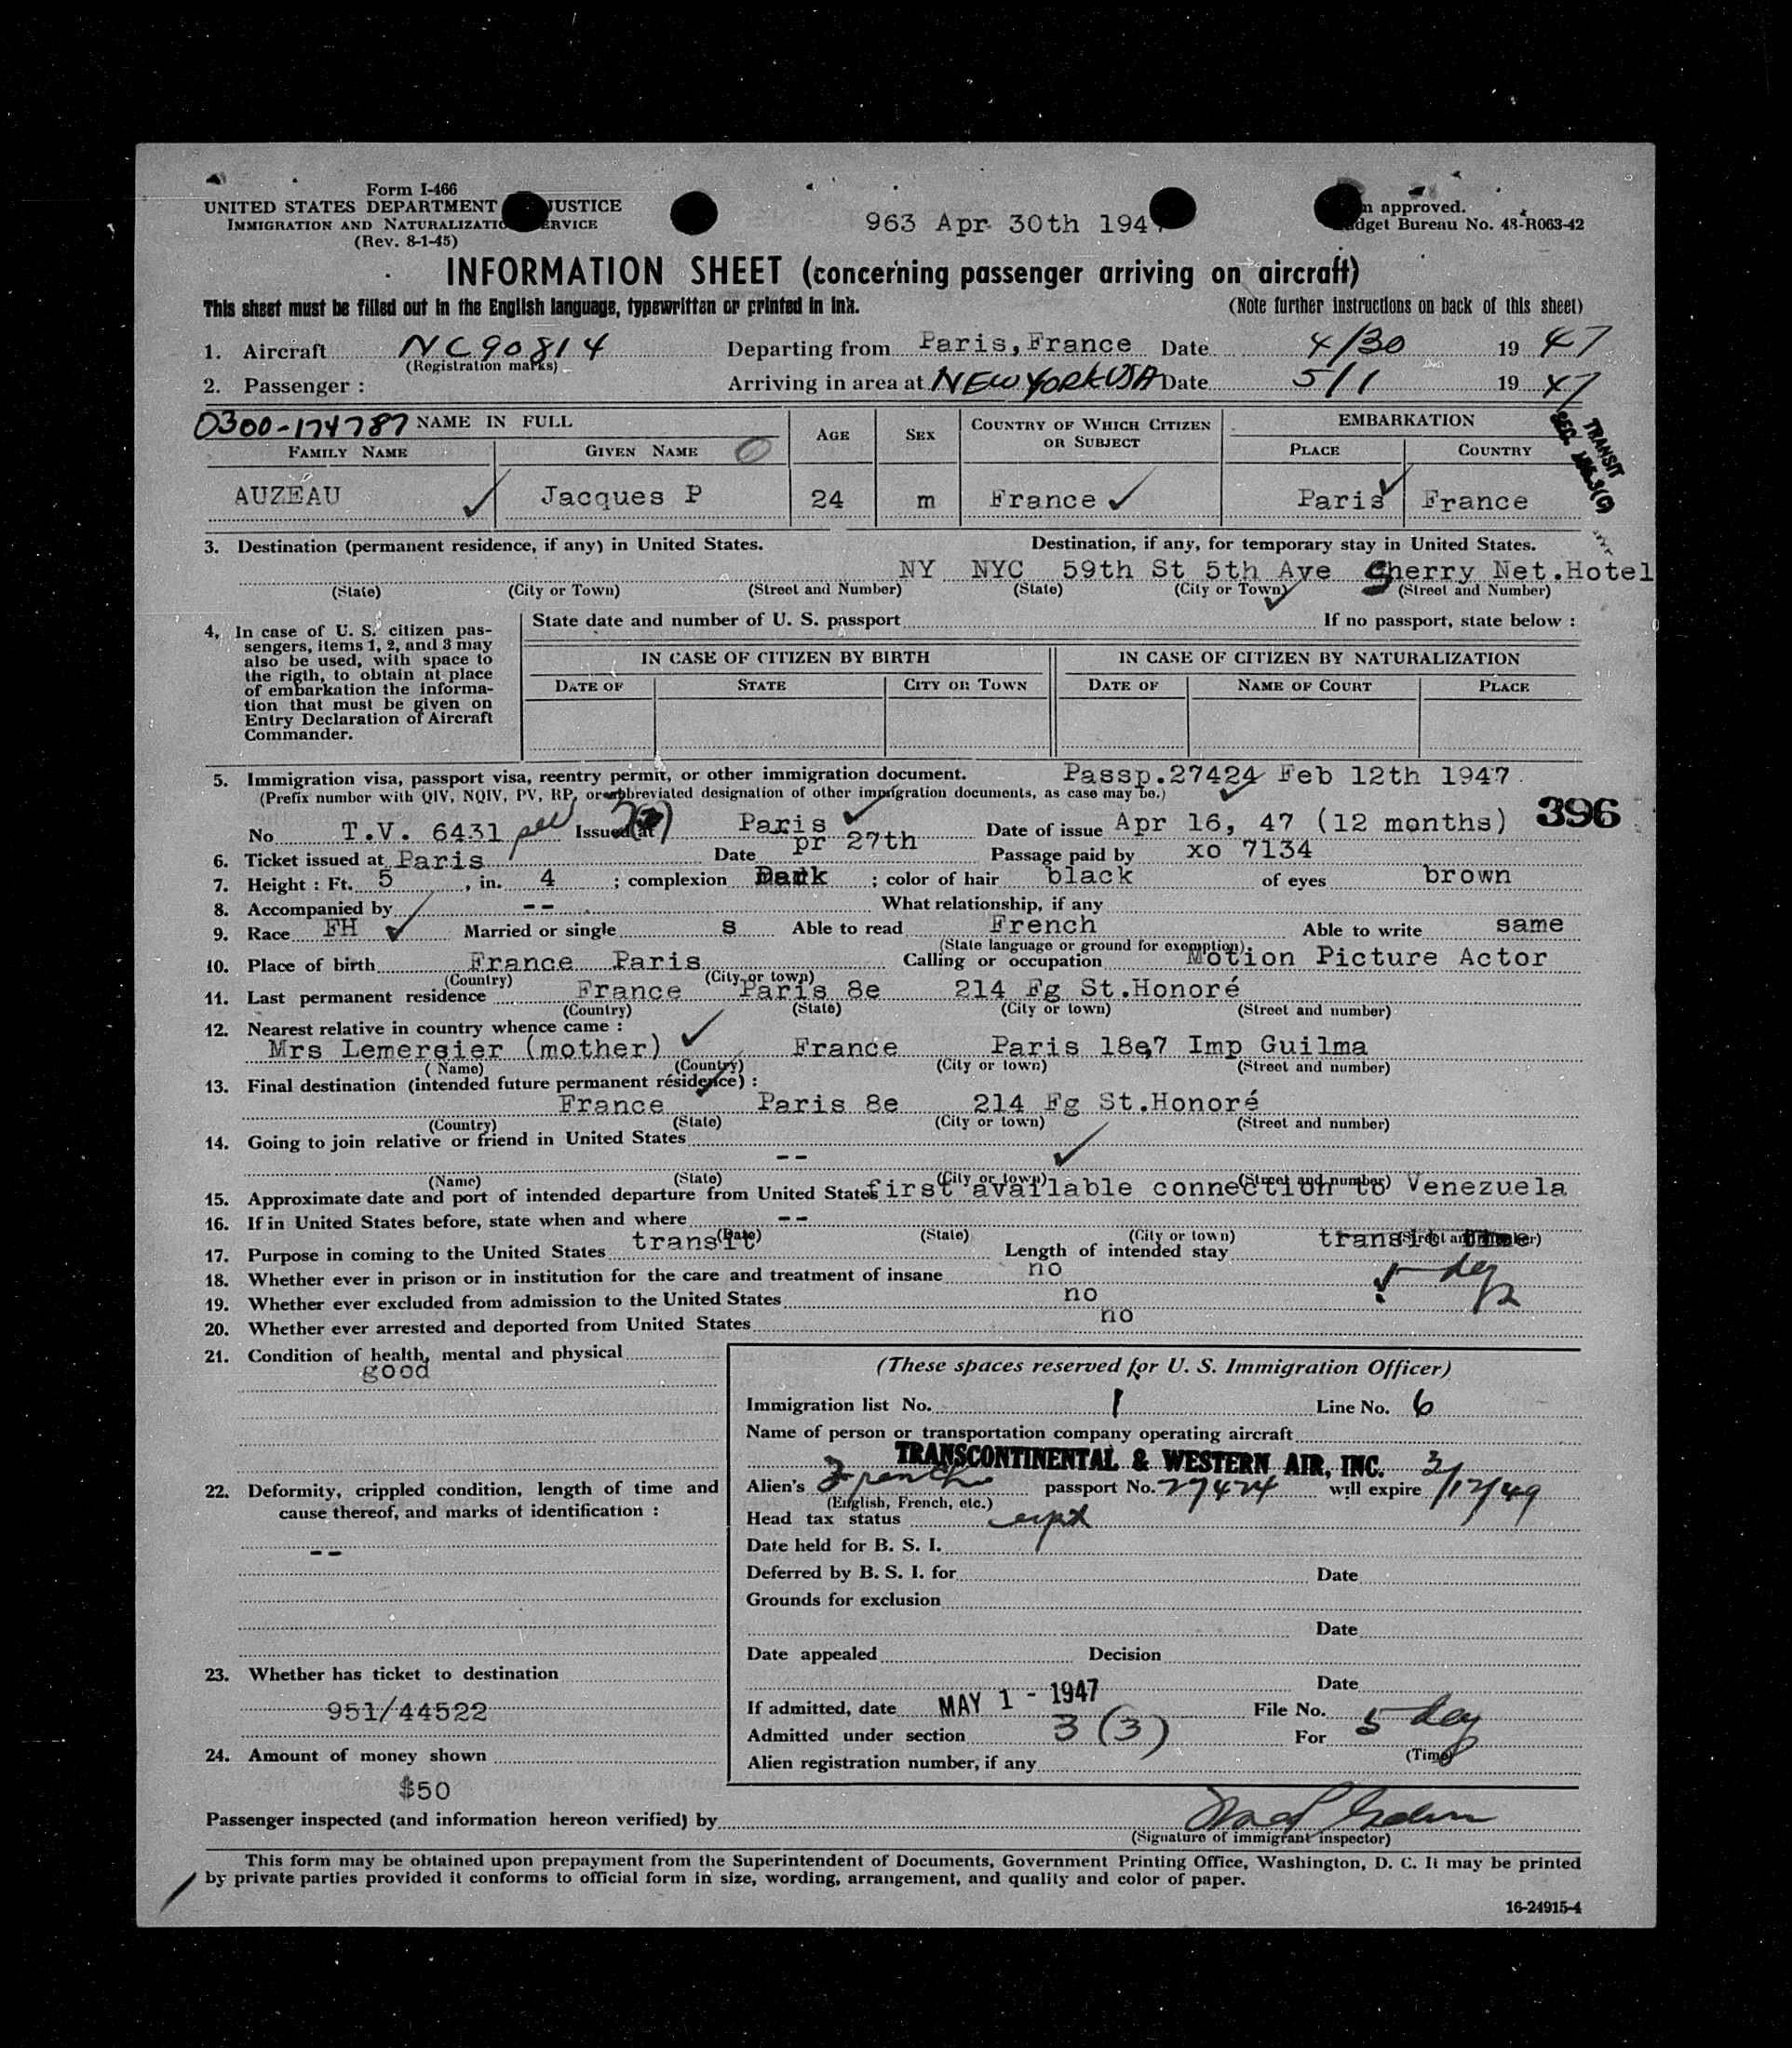 Form I-466
UNITED STATES DEPARTMENT JUSTICE
IMMIGRATION AND NATURALIZATIO ERVICE
(Rev. 8-1-45)
963 Apr 30th 194
m approved.
dget Bureau No. 43-R063-42
INFORMATION SHEET (concerning passenger arriving on aircraft)
This sheet must be filled out in the English language, typewritten or printed in ink. (Note further instructions on back of this sheet)
1. Aircraft NC90814 Departing from Paris, France Date 4/30 19 47
(Registration marks)
2. Passenger : Arriving in area at NEW YORK USA Date 5/1 19 47
0300-174787 NAME IN FULL AGE SEX COUNTRY OF WHICH CITIZEN OR SUBJECT EMBARKATION
FAMILY NAME GIVEN NAME PLACE COUNTRY
TRANSIT
SEC.
AUZEAU Jacques P 24 m France Paris France
3. Destination (permanent residence, if any) in United States. Destination, if any, for temporary stay in United States.
NY NYC 59th St 5th Ave Sherry Net.Hotel
(State) (City or Town) (Street and Number) (State) (City or Town) (Street and Number)
4. In case of U. S. citizen pas-
sengers, items 1, 2, and 3 may
also be used, with space to
the rigth, to obtain at place
of embarkation the informa-
tion that must be given on
Entry Declaration of Aircraft
Commander.
State date and number of U. S. passport If no passport, state below :
IN CASE OF CITIZEN BY BIRTH IN CASE OF CITIZEN BY NATURALIZATION
DATE OF STATE CITY OR TOWN DATE OF NAME OF COURT PLACE
5. Immigration visa, passport visa, reentry permit, or other immigration document. Passp.27424 Feb 12th 1947
(Prefix number with QIV, NQIV, PV, RP, or abbreviated designation of other immigration documents, as case may be.)
396
No T.V. 6431 Issued at Paris Date of issue Apr 16, 47 (12 months)
6. Ticket issued at Paris Date pr 27th Passage paid by xo 7134
7. Height : Ft. 5 , in. 4 ; complexion Dark ; color of hair black of eyes brown
8. Accompanied by -- What relationship, if any
9. Race FH Married or single s Able to read French Able to write same
(State language or ground for exemption)
10. Place of birth France Paris Calling or occupation Motion Picture Actor
(Country) (City or town)
11. Last permanent residence France Paris 8e 214 Fg St.Honoré
(Country) (State) (City or town) (Street and number)
12. Nearest relative in country whence came :
Mrs Lemercier (mother) France Paris 18e,7 Imp Guilma
(Name) (Country) (City or town) (Street and number)
13. Final destination (intended future permanent résidence) :
France Paris 8e 214 Fg St.Honoré
(Country) (State) (City or town) (Street and number)
14. Going to join relative or friend in United States
--
(Name) (State) (City or town) (Street and number)
15. Approximate date and port of intended departure from United States first available connection to Venezuela
16. If in United States before, state when and where --
(Date) (State) (City or town) (Street and number)
17. Purpose in coming to the United States transit Length of intended stay transit time
18. Whether ever in prison or in institution for the care and treatment of insane no
19. Whether ever excluded from admission to the United States no
20. Whether ever arrested and deported from United States no
21. Condition of health, mental and physical
good
22. Deformity, crippled condition, length of time and
cause thereof, and marks of identification :
--
23. Whether has ticket to destination
951/44522
24. Amount of money shown
$50
(These spaces reserved for U. S. Immigration Officer)
Immigration list No. 1 Line No. 6
Name of person or transportation company operating aircraft
TRANSCONTINENTAL & WESTERN AIR, INC.
Alien's French passport No. 27424 will expire 3/12/49
(English, French, etc.)
Head tax status
Date held for B. S. I.
Deferred by B. S. I. for Date
Grounds for exclusion
Date
Date appealed Decision
Date
If admitted, date MAY 1 - 1947 File No.
Admitted under section 3 (3) For 5 day
(Time)
Alien registration number, if any
Passenger inspected (and information hereon verified) by
(Signature of immigrant inspector)
This form may be obtained upon prepayment from the Superintendent of Documents, Government Printing Office, Washington, D. C. It may be printed
by private parties provided it conforms to official form in size, wording, arrangement, and quality and color of paper.
16-24915-4